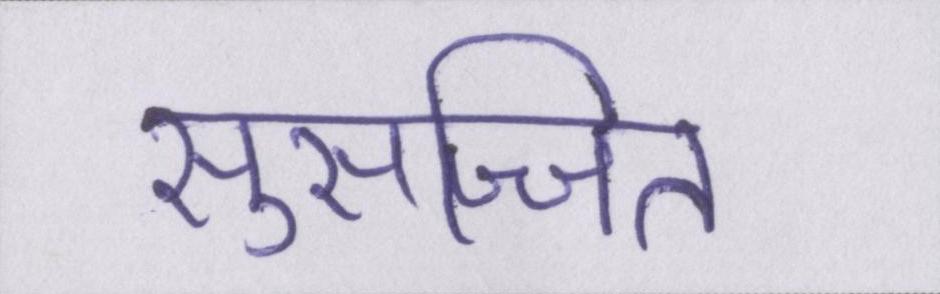 सुसज्जित